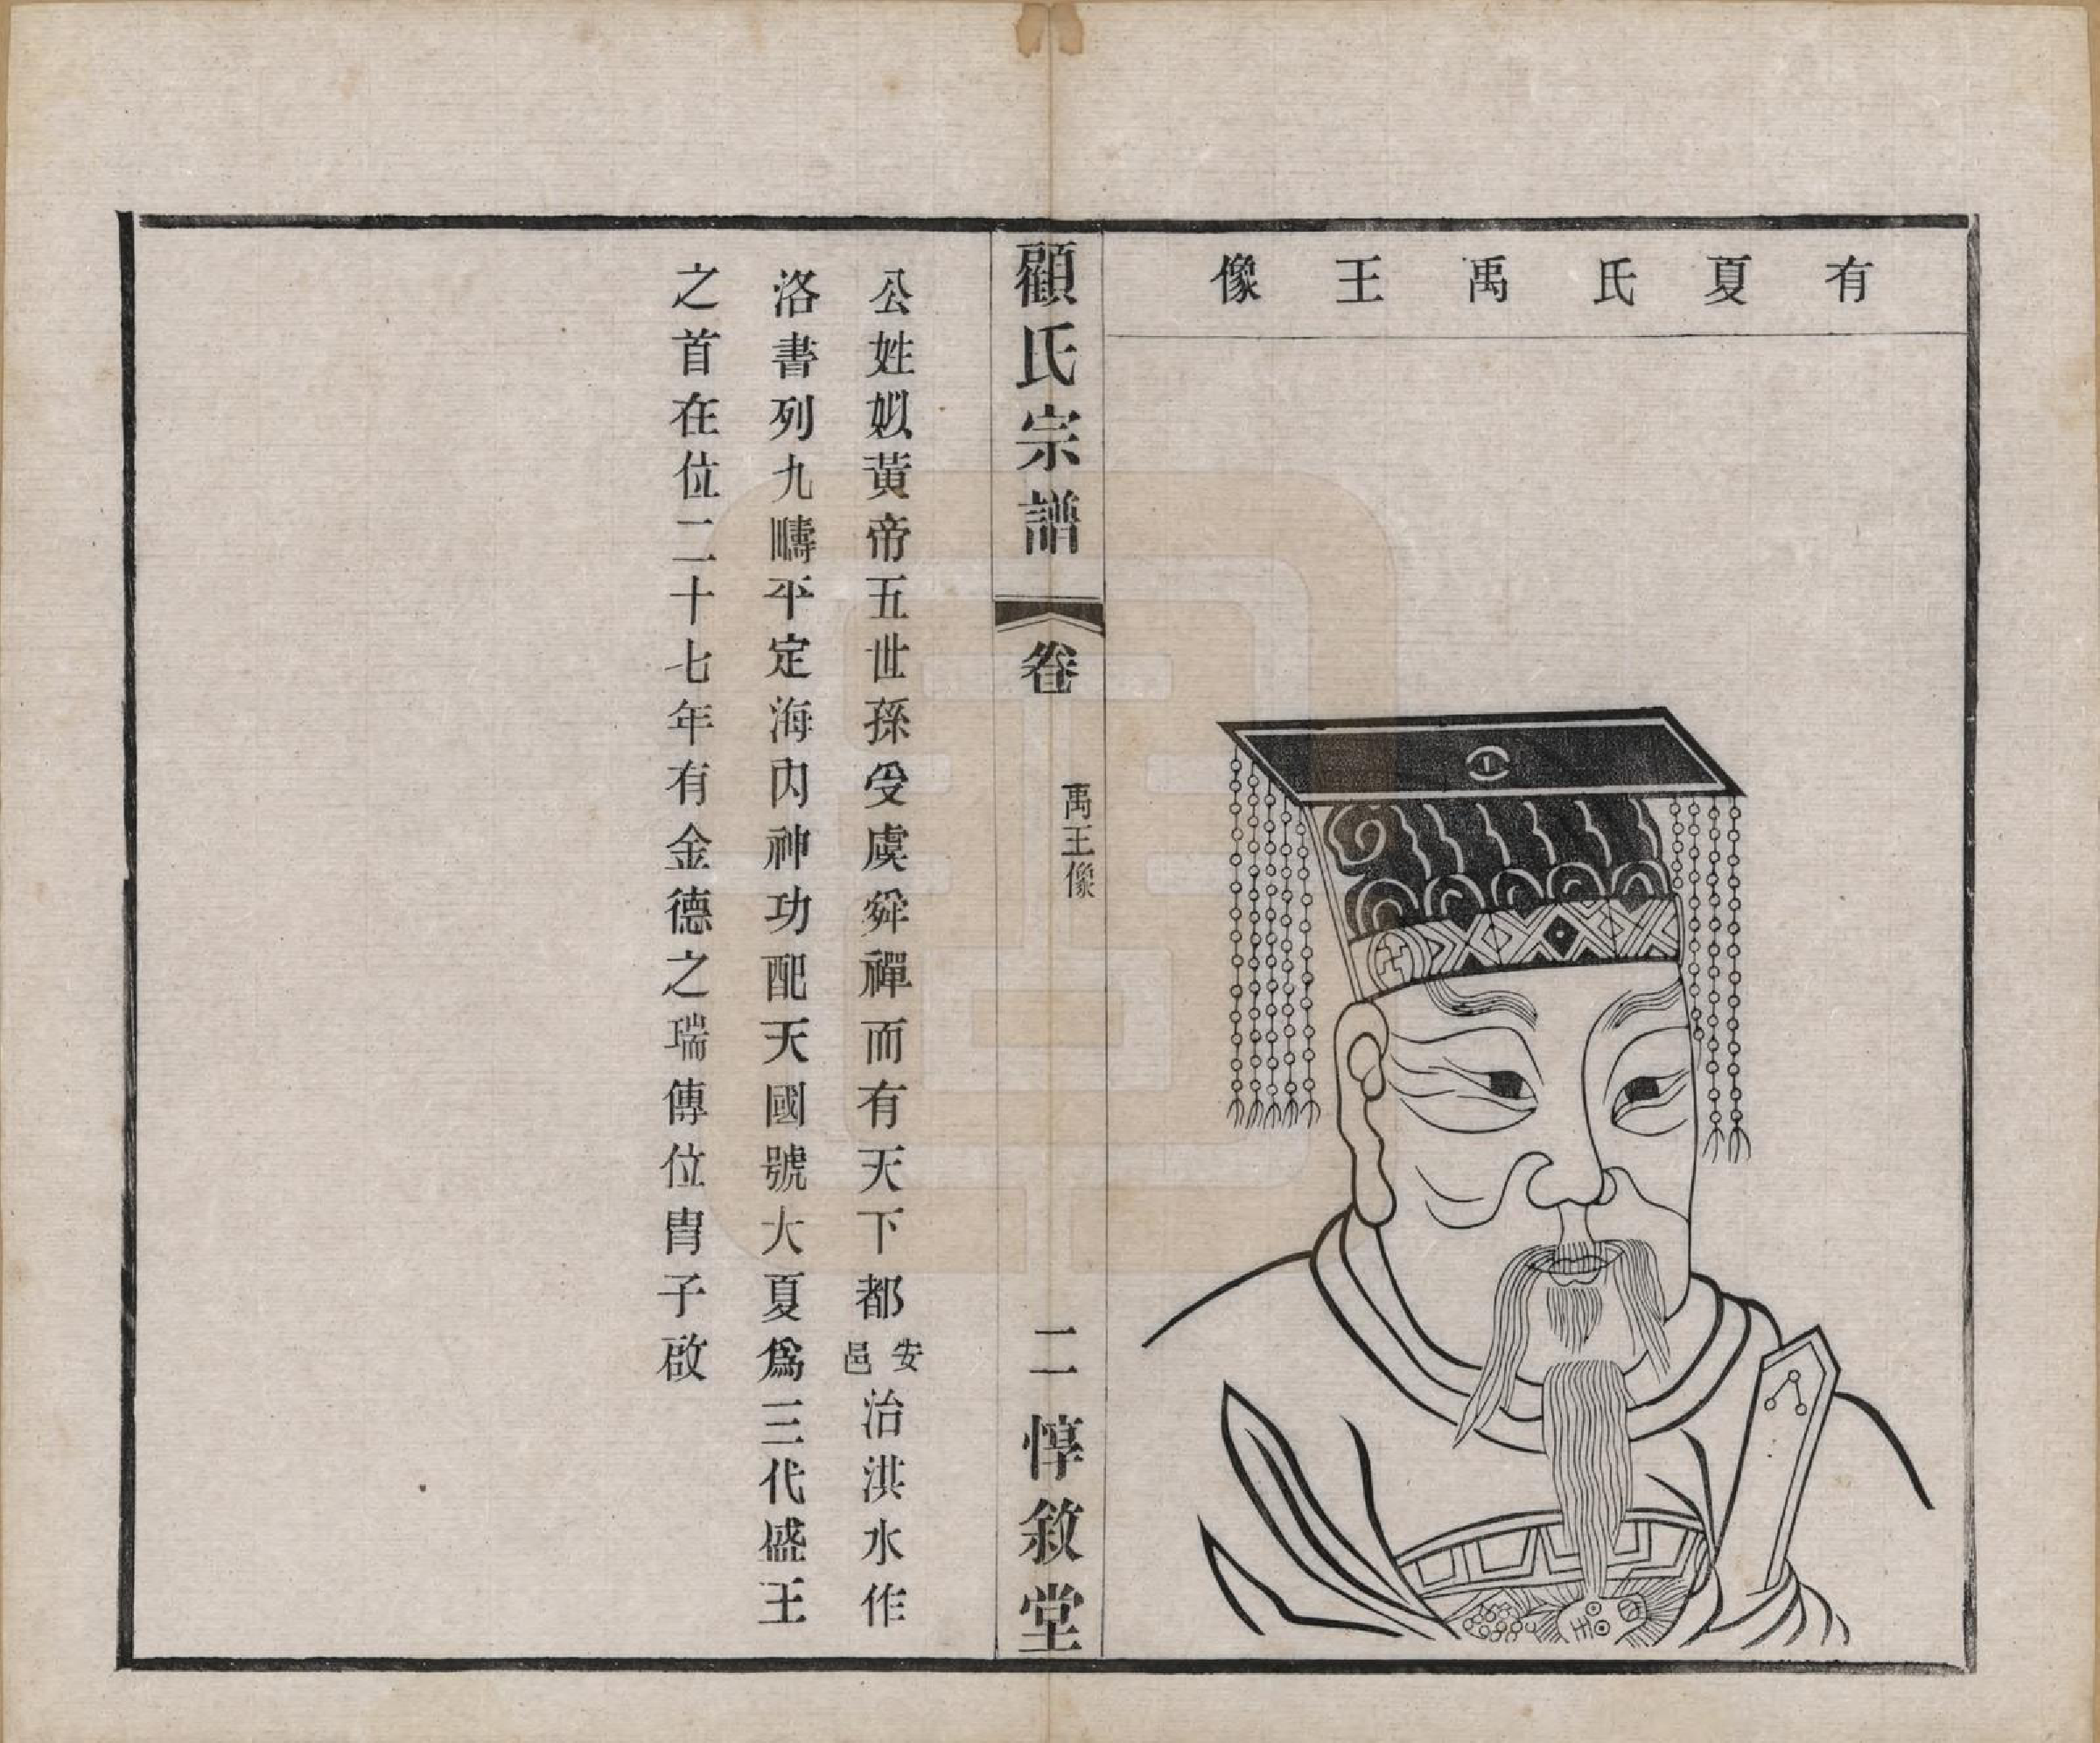 有夏氏禹王像
顧氏宗譜 卷 禹王像 二 惇敘堂
公姓姒黃帝五世孫受虞舜禪而有天下都安邑治洪水作
洛書列九疇平定海內神功配天國號大夏爲三代盛王
之首在位二十七年有金德之瑞傳位冑子啟